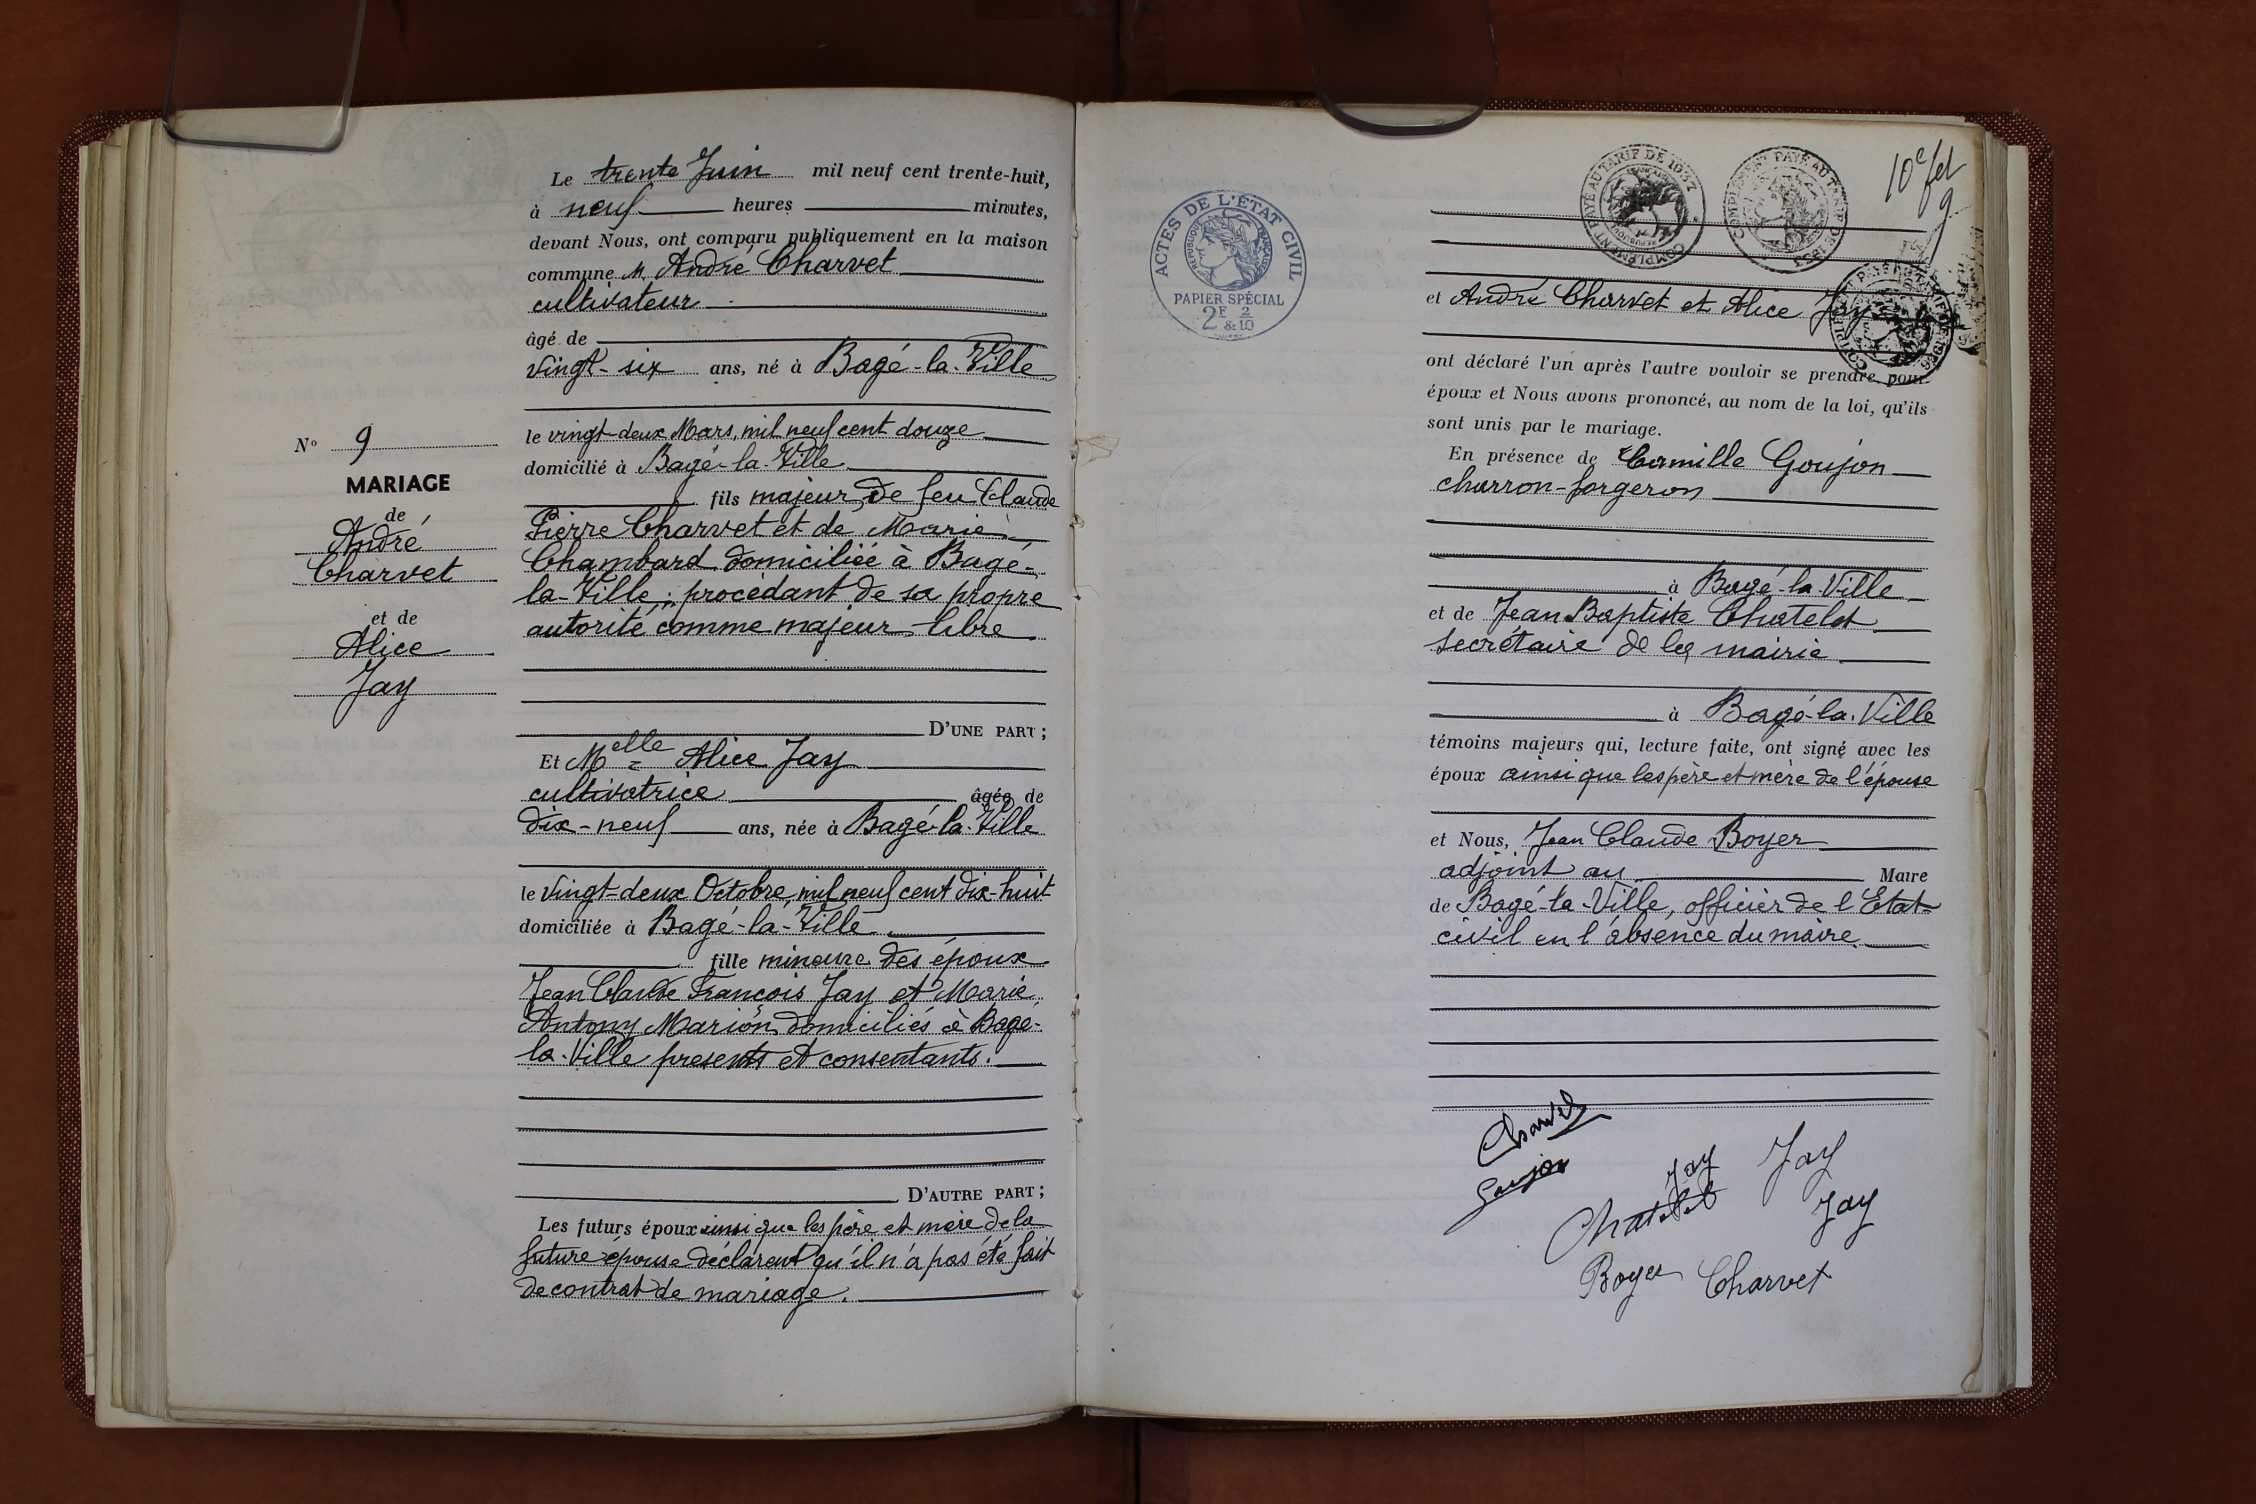 Le trente Juin mil neuf cent trente-huit,
à neuf heures minutes,
devant Nous, ont comparu publiquement en la maison
commune M. André Charvet
cultivateur
âgé de
vingt-six ans, né à Bagé-la-Ville
le vingt-deux Mars, mil neuf cent douze
domicilié à Bagé-la-Ville
fils majeur de feu Claude
Pierre Charvet et de Marie
Chambard domiciliée à Bagé-
la-Ville ; procédant de sa propre
autorité comme majeur libre
D'UNE PART ;
Et Melle Alice Jay
cultivatrice âgée de
dix-neuf ans, née à Bagé-la-Ville
le vingt-deux Octobre, mil neuf cent dix-huit
domiciliée à Bagé-la-Ville
fille mineure des époux
Jean Claude François Jay et Marie
Antony Marion domiciliés à Bagé-
la-Ville presents et consentants.
D'AUTRE PART ;
Les futurs époux ainsi que les père et mère de la
future épouse déclarent qu'il n'a pas été fait
de contrat de mariage.
N° 9
MARIAGE
de
André
Charvet
et de
Alice
Jay
ACTES DE L'ÉTAT CIVIL
RÉPUBLIQUE FRANÇAISE
PAPIER SPÉCIAL
2F & 2/10
COMPLÉMENT PAYÉ AU TARIF DE 1937
COMPLÉMENT PAYÉ AU TARIF DE
10e fet
9
et André Charvet et Alice Jay
ont déclaré l'un après l'autre vouloir se prendre pour
époux et Nous avons prononcé, au nom de la loi, qu'ils
sont unis par le mariage.
En présence de Camille Goujon
charron-forgeron
à Bagé-la-Ville
et de Jean Baptiste Chatelet
secrétaire de la mairie
à Bagé-la-Ville
témoins majeurs qui, lecture faite, ont signé avec les
époux ainsi que les père et mère de l'épouse
et Nous, Jean Claude Boyer
adjoint au Maire
de Bagé-la-Ville, officier de l'Etat-
civil en l'absence du maire
Charvet
Goujon
Jay
Jay
Chatelet
Jay
Boyer
Charvet